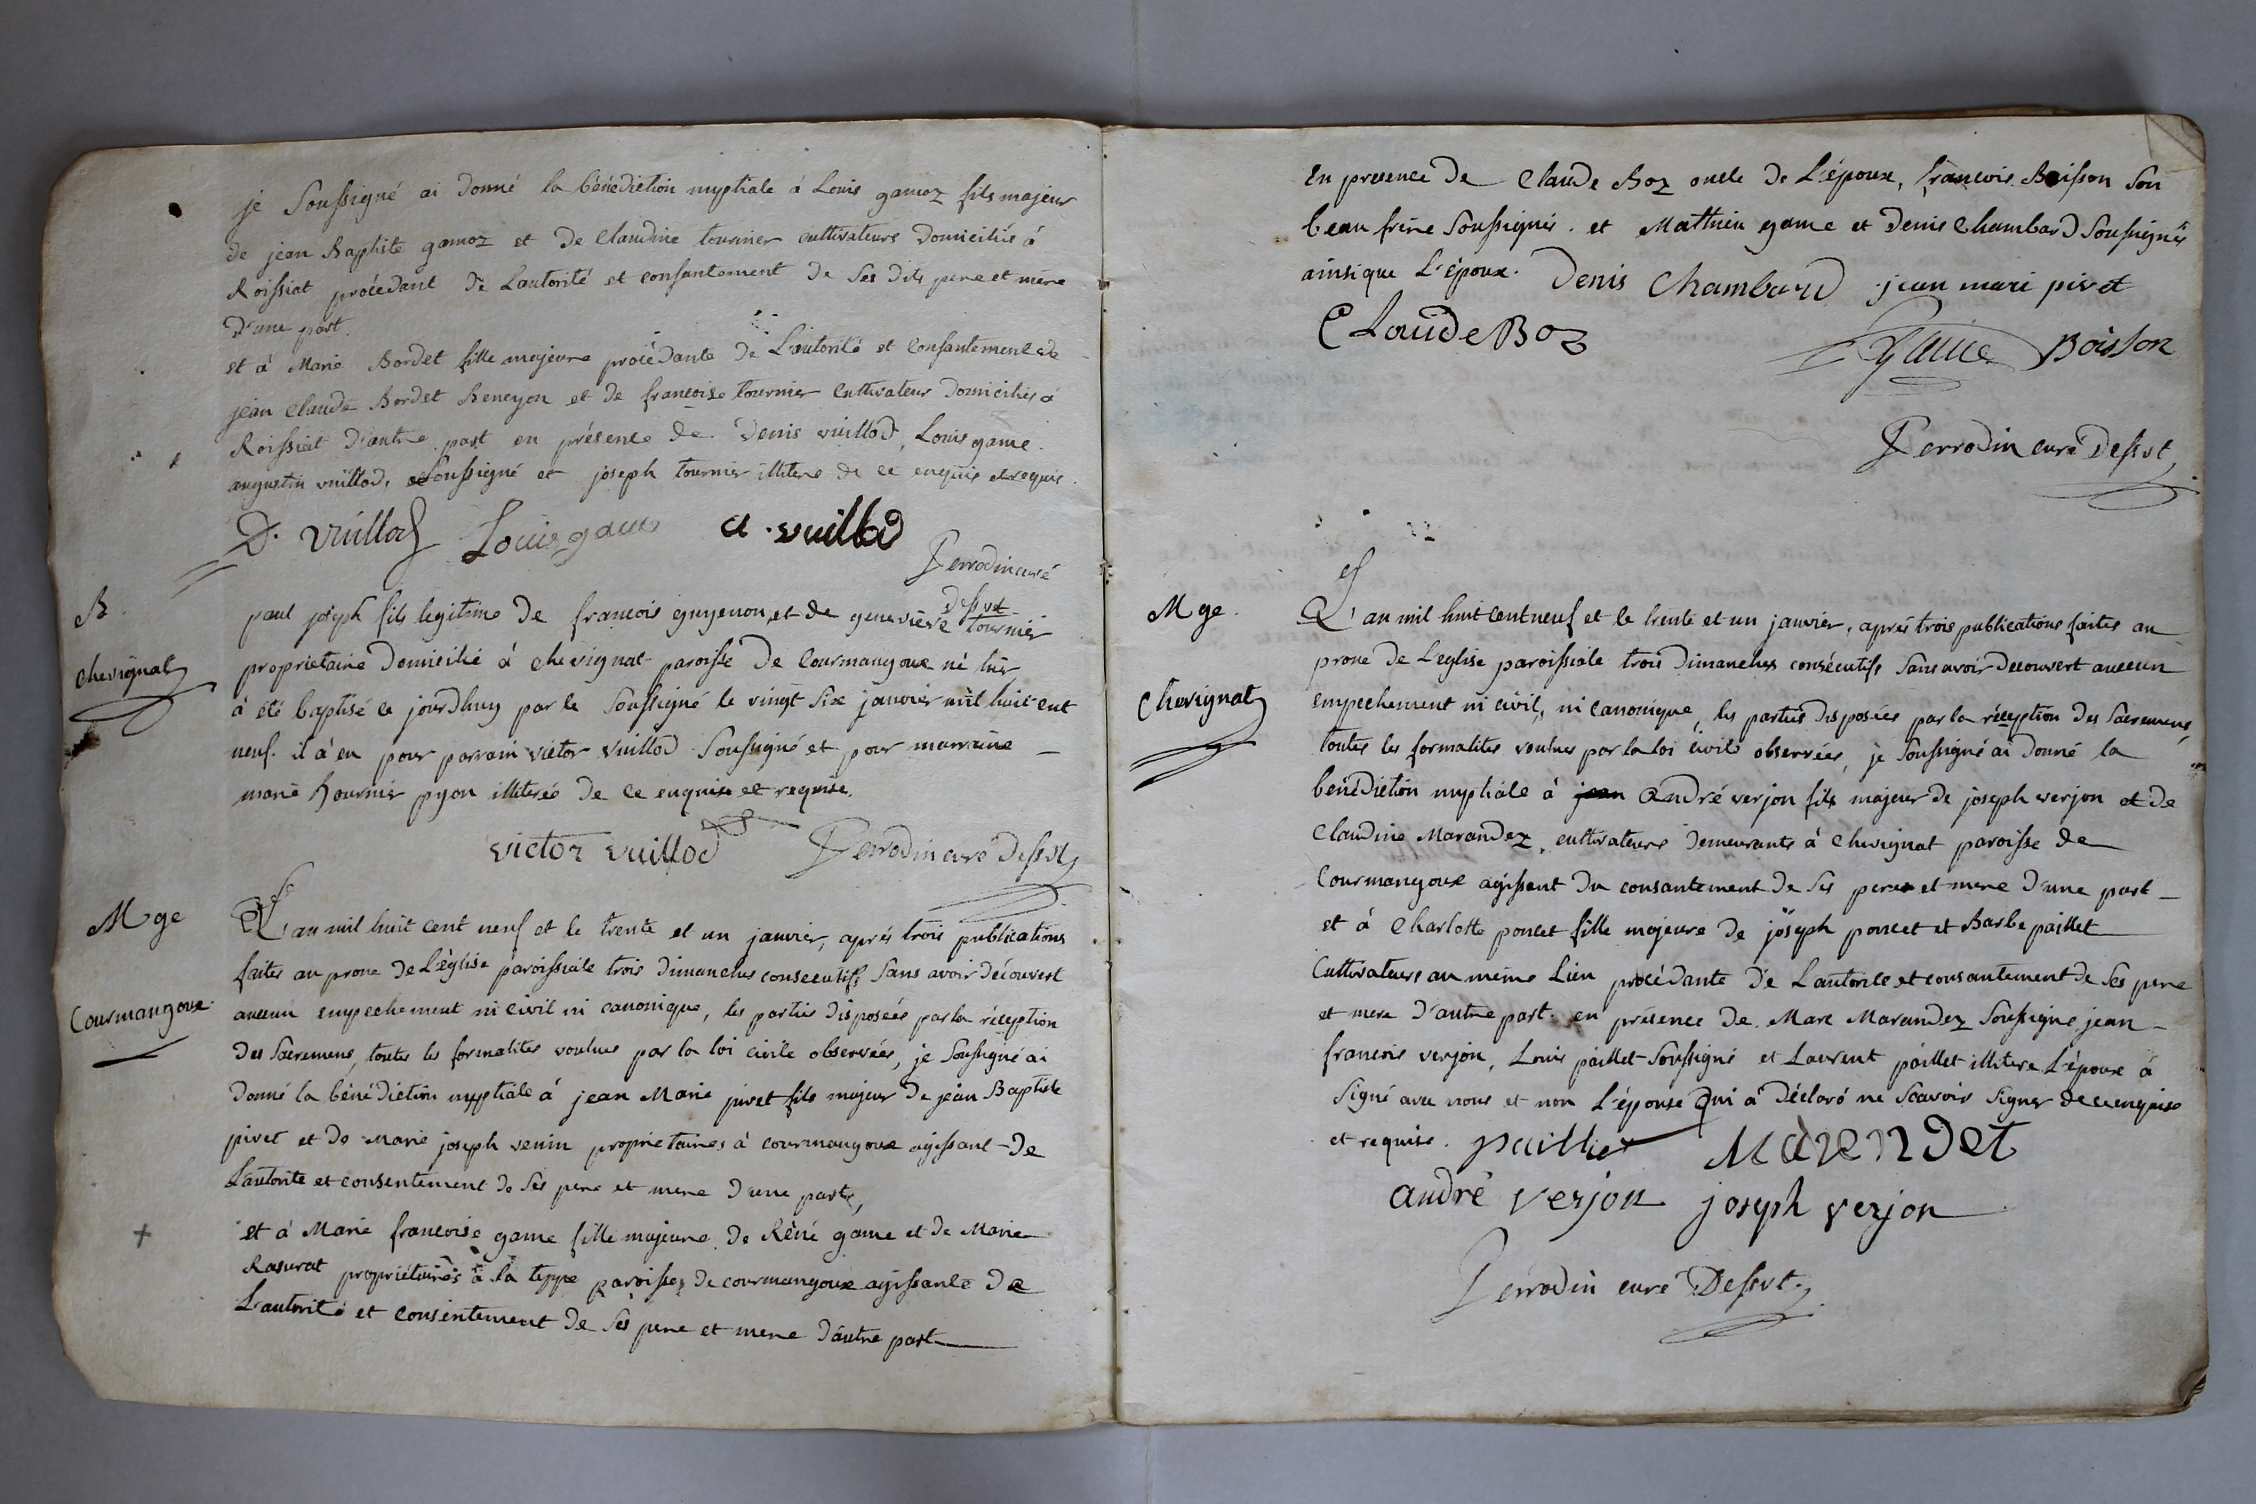 je Soussigné ai donné la bénédiction nuptiale á Louis gamoz fils majeur
de jean Baptiste gamoz et de Claudine tournier cultivateurs domiciliés á
Roissiat procédant de Lautorité et consantement de Ses dits pere et mere
d'une part.
et á Marie Bordet fille majeure procédante de L'autorité et Consantement de
jean Claude Bordet Beneyon et de francoise tournier Cultivateur domiciliés á
Roissiat d'autre part en présence de Denis vuillod, Louis game.
augustin vuillod, Soussigné et joseph tournier illitere de ce enquis et requis.
D. vuillod Louis game a. vuillod
Perrodin curé
dessvt
B.
Chevignat
paul joseph fils legitime de francois guyenon, et de genevieve tournier
proprietaire domicilié á chevignat paroisse de Courmangoux né hier
á été baptisé ce jourdhuy par le Soussigné le vingt Six janvier mil huit cent
neuf. il á eu pour parrain victor vuillod Soussigné et pour marraine
marie tournier pyon illiterée de ce enquise et requise.
victor vuillod Perrodin curé dessvt
M ge
Courmangoux
L'an mil huit cent neuf et le trente et un janvier, aprés trois publications
faites au prone de L'église paroissiale trois dimanches consecutifs Sans avoir découvert
aucun empechement ni civil ni canonique, les parties disposées par la réception
des Sacremens, toutes les formalites voulues par la loi civile observées, je Soussigné ai
donné la bénédiction nuptiale á jean Marie pivet fils majeur de jean Baptiste
pivet et de Marie joseph venin proprietaires á courmangoux agissant de
Lautorite et consentement de Ses pere et mere d'une part,
et á Marie francoise game fille majeure de Réné game et de Marie
Rasurat propriétaires á la teppe paroisse de courmangoux agissante de
L'autorité et consentement de Ses pere et mere d'autre part
En presence de Claude Boz oncle de L'époux, francois Boisson Son
beau frere Soussignés. et Mathieu game et Denis Chambard Soussignés
ainsi que L'époux. Denis Chambard jean mari pivet
Claude Boz
game Boisson
Perrodin curé dessvt
M ge.
Chevignat
L'an mil huit cent neuf et le trente et un janvier, aprés trois publications faites au
prone de Leglise paroissiale trois dimanches consécutifs Sans avoir decouvert aucun
empechement ni civil, ni canonique, les parties disposées par la réception des Sacremens,
toutes les formalites voulues par la loi civile observées, je Soussigné ai donné la
bénédiction nuptiale á jean andré verjon fils majeur de joseph verjon et de
Claudine Marandez, cultivateurs demeurants á chevignat paroisse de
Courmangoux agissant du consantement de Ses pere et mere d'une part
et á Charlotte poncet fille majeure de joseph poncet et Barbe paillet
Cultivateurs au même Lieu procédante de Lautorite et consantement de Ses pere
et mere d'autre part. en présence de Marc Marandez Soussigné jean
francois verjon, Louis paillet Soussigné et Laurent paillet illitere L'époux á
Signé avec nous et non L'épouse Qui á déclaré ne Scavoir Signer de ce enquise
et requise. paillet Marendet
andré verjon joseph verjon
Perrodin curé Dessvt